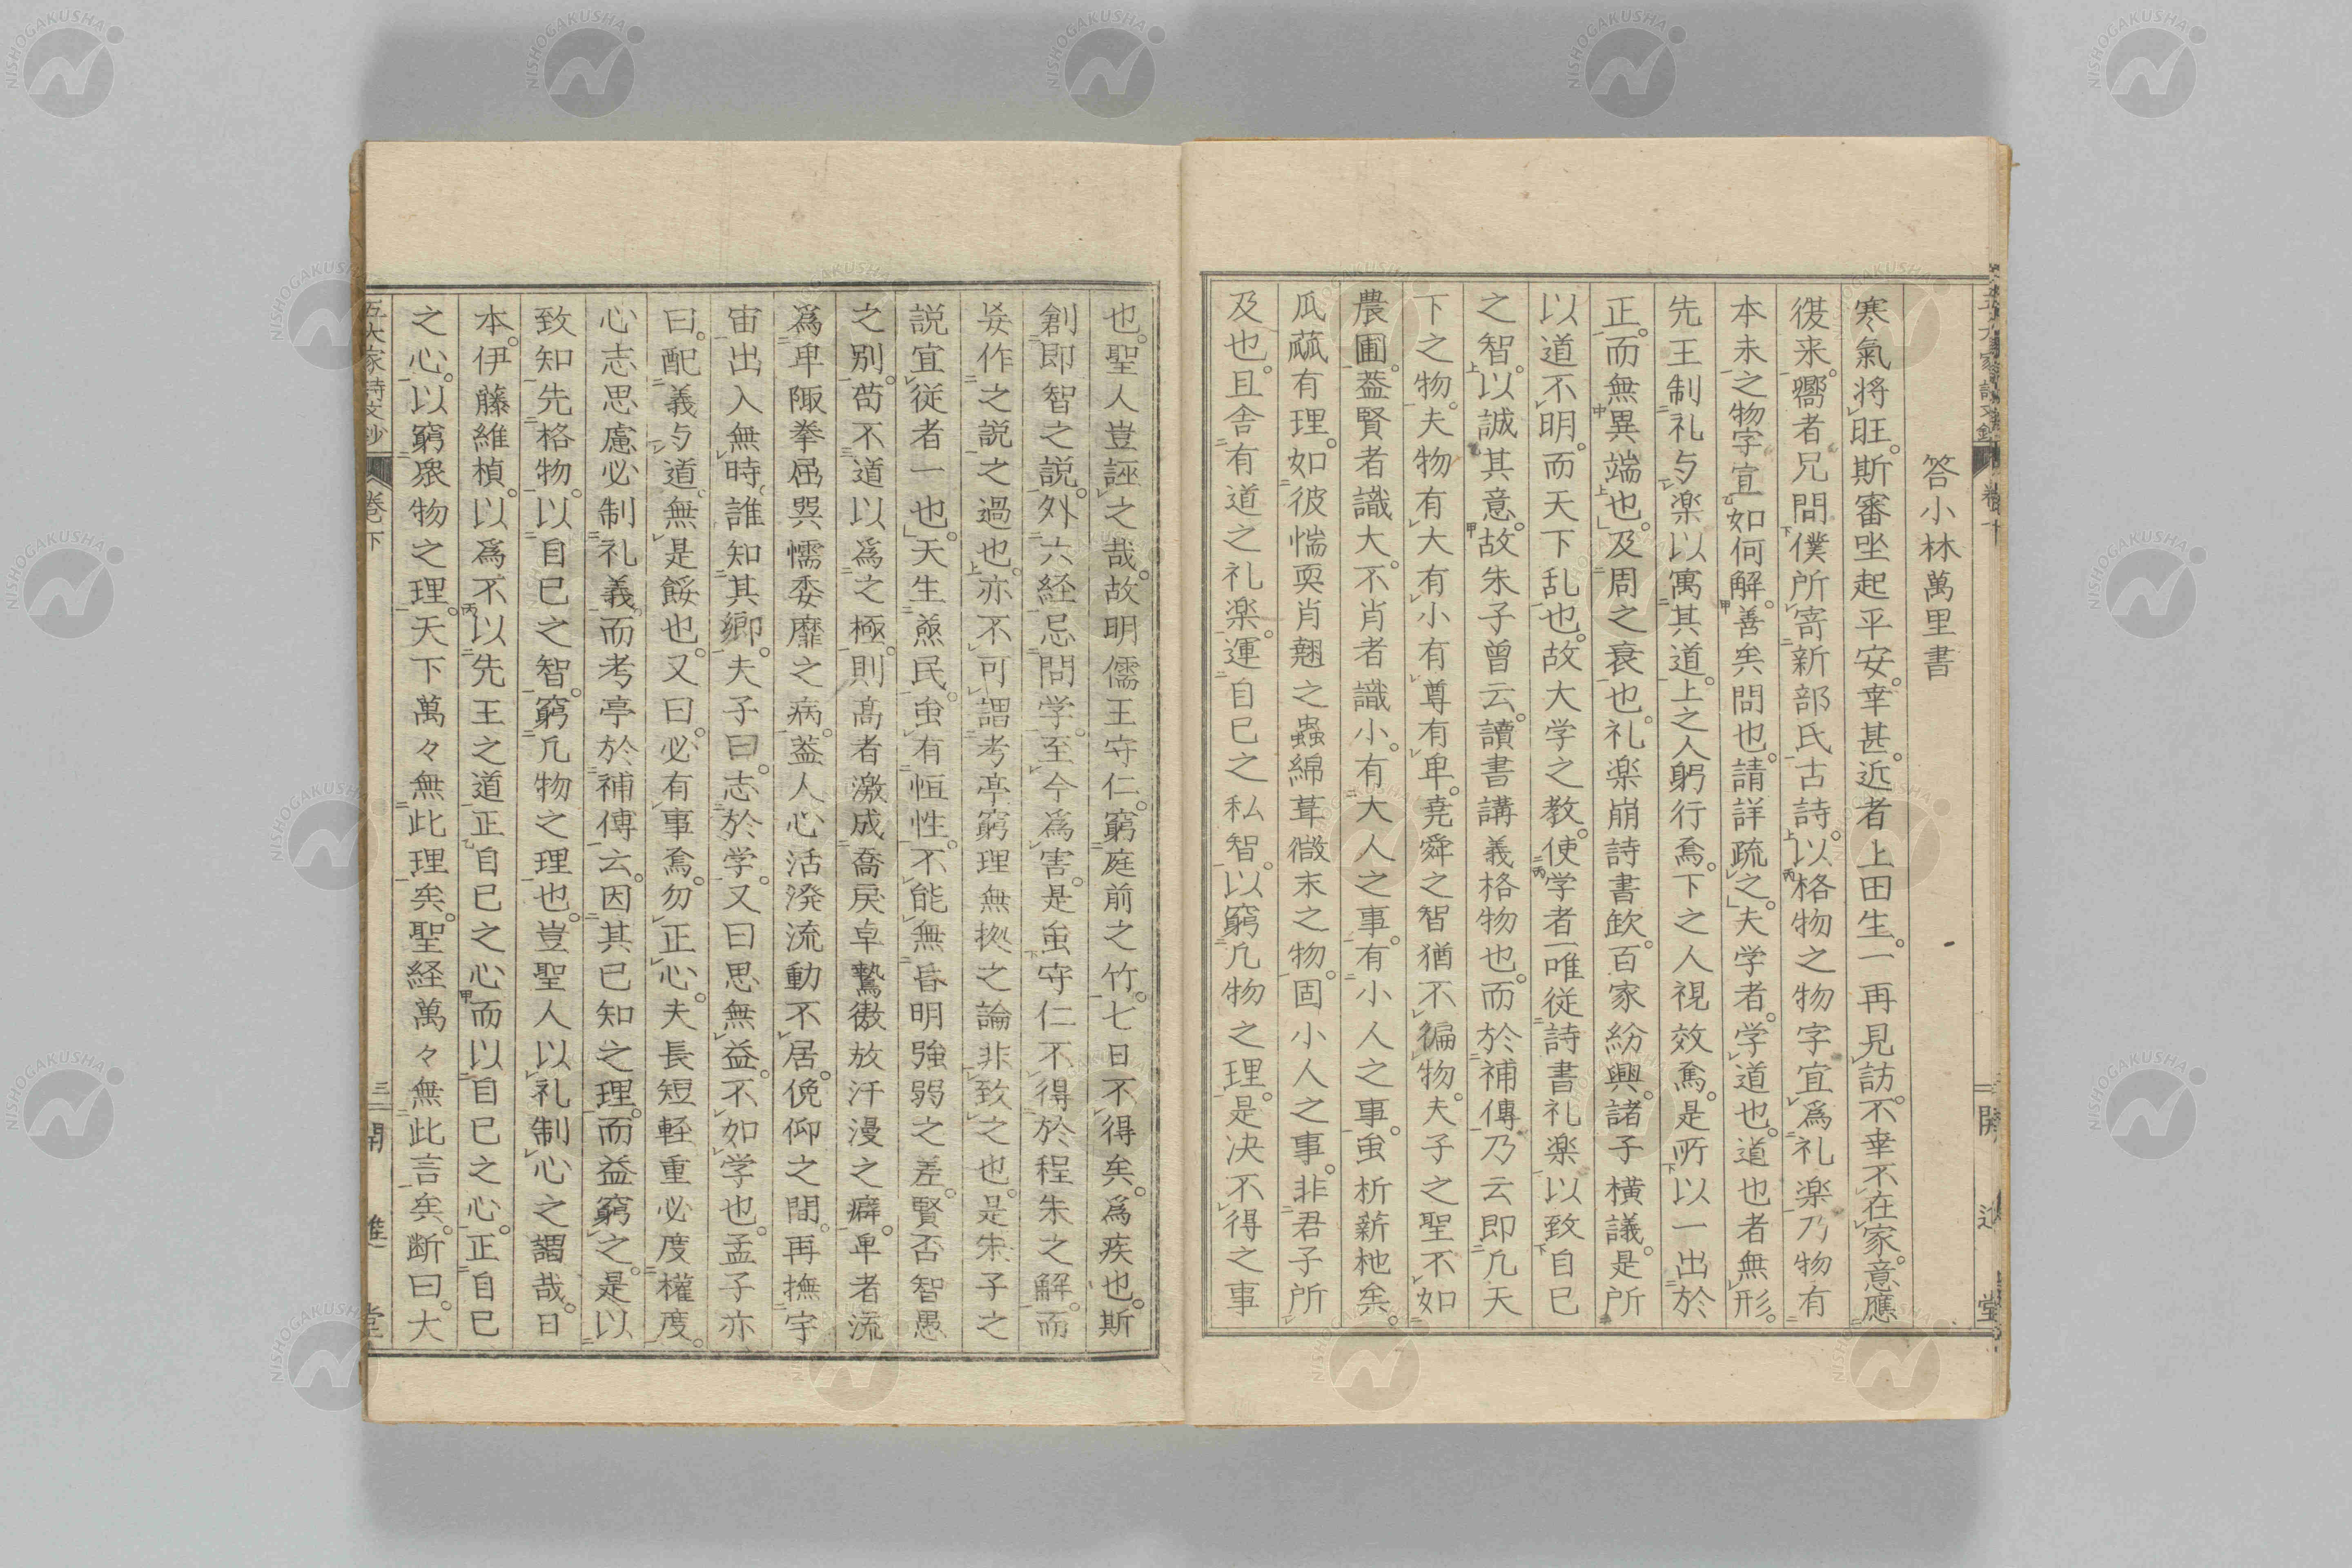 答小林萬里書
寒氣将旺。斯審坐起平安。幸甚。近者上田生。一再見訪。不幸不在家。意應
復来。嚮者兄問僕所寄新部氏古詩。以格物之物字宜為礼楽乃物有
本末之物字宜如何解。善矣問也。請詳疏之。夫学者。学道也。道也者無形。
先王制礼与楽以寓其道。上之人躬行焉。下之人視效焉。是所以一出於
正。而無異端也。及周之衰也。礼楽崩詩書欽。百家紛興。諸子横議。是所
以道不明。而天下乱也。故大学之教。使学者唯従詩書礼楽以致自己
之智。以誠其意。故朱子曽云。讀書講義格物也。而於補傳乃云即凡天
下之物。夫物有大有小有尊有卑。堯舜之智猶不徧物。夫子之聖不如
農圃。葢賢者識大。不肖者識小。有大人之事。有小人之事。虽析薪杝矣。
瓜蓏有理。如彼惴耎肖翹之蟲綿茸微末之物。固小人之事。非君子所
及也。且舎有道之礼楽。運自己之私智。以窮凡物之理。是决不得之事
也。聖人豈誣之哉。故明儒王守仁。窮庭前之竹。七日不得矣。為疾也。斯
創即智之説。外六経忌問学。至今為害。是虽守仁不得於程朱之解。而
妄作之説之過也。亦不可謂考亭窮理無拠之論非致之也。是宋子之
説宜従者一也。天生烝民。虽有恒性。不能無昏明強弱之差。賢否智愚
之別。苟不道以為之極。則髙者激成喬戻卓鷙徼放汗漫之癖。卑者流
為卑陬拳局巽懦委靡之病。葢人心活溌流動不居。俛仰之間。再撫宇
宙出入無時。誰知其郷。夫子曰。志於学。又曰思無益。不如学也。孟子亦
曰。配義与道。無是餒也。又曰。必有事焉。勿正心。夫長短軽重必度權度。
心志思慮必制礼義。而考亭於補傳云。因其已知之理。而益窮之。是以
致知先格物。以自己之智。窮凡物之理也。豈聖人以礼制心之謂哉。日
本。伊藤維楨。以為不以先王之道正自己之心而以自己之心。正自己
之心。以窮衆物之理。天下萬々無此理矣。聖経萬々無此言矣。断曰。大
五大家詩文鈔
巻下
三
開
進
堂